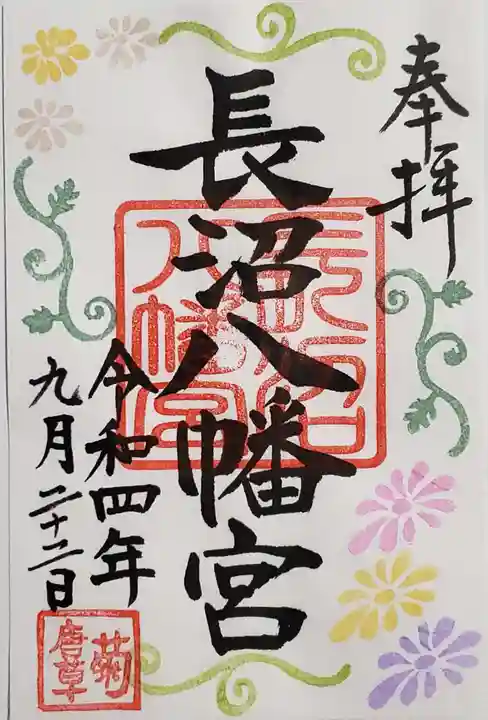 奉拝
長沼八幡宮
長沼八幡宮
令和四年
九月二十二日
菊
唐草